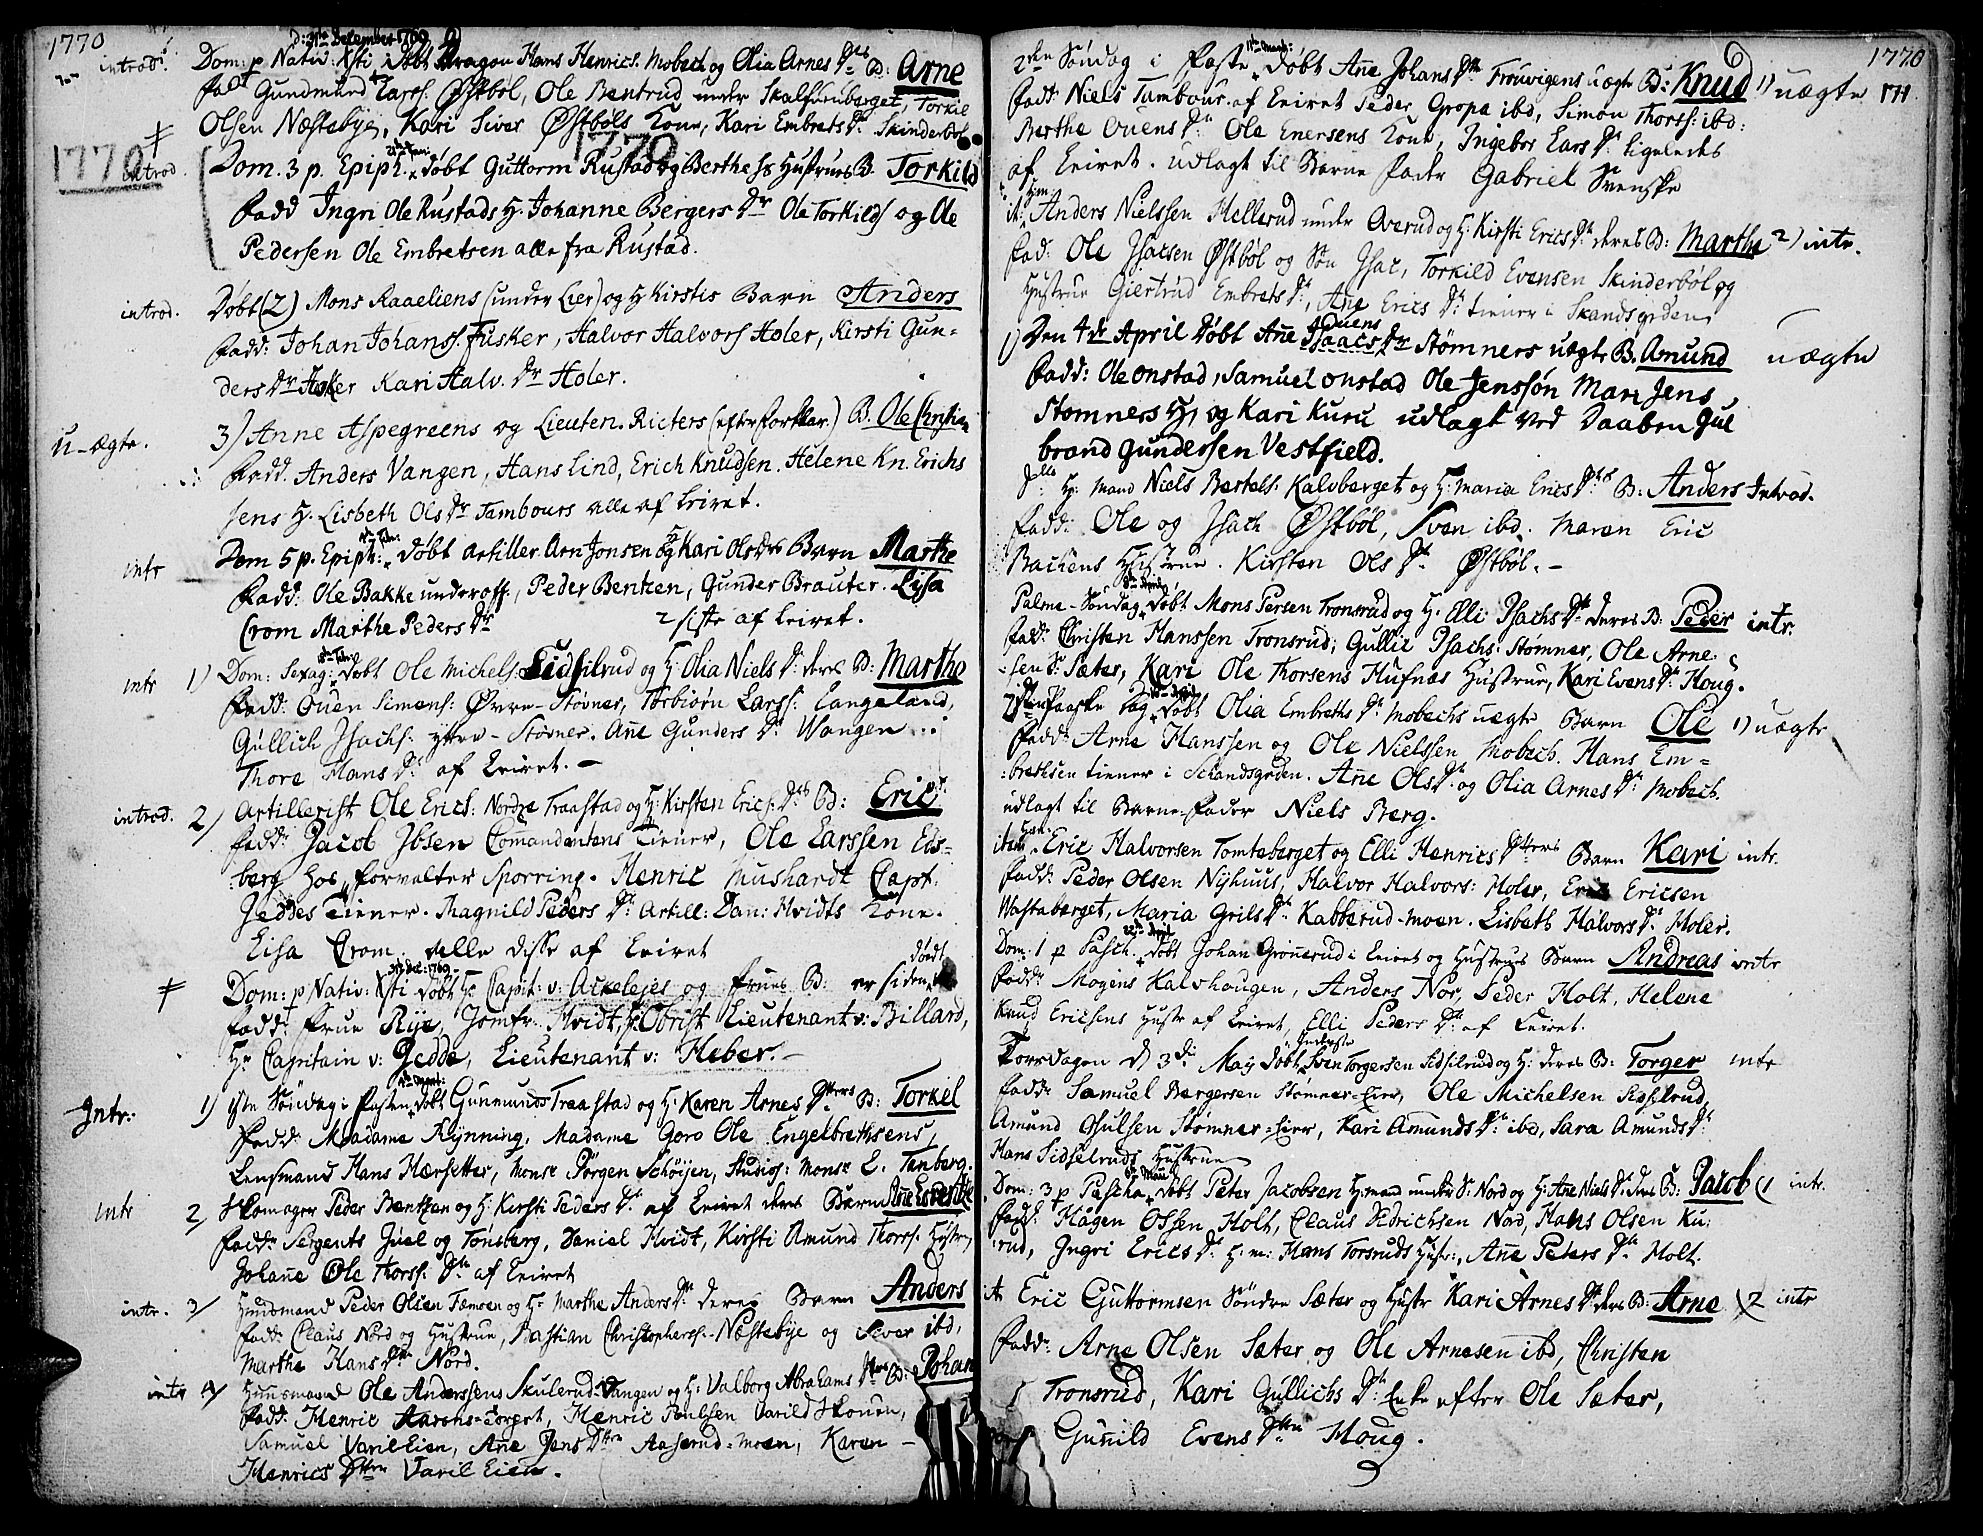 1770
d: 31te December 1769
introd. Dom: p Nativ: Xsti Døbt Dragon Hans Henrics. Mobech og Olia Arnes Dtrs B: Arne
Fadd Gundmund Larss. Østbøl, Ole Bentrud under Skalfuruberget, Torkil
Olsen Næstebye, Kari Siver Østbøls Kone, Kari Embrets Dr Skinderbøl
1770
1770
introd. Dom. 3 p. Epiph. Døbt Guttorm Rustad og Berthe hs Hustrues B. Torkild
Fadd Ingri Ole Rustads H. Johanne Bergers Dr Ole Torkilds og Ole
Pedersen Ole Embretsen alle fra Rustad.
introd. Døbt (2) Mons Raaeliens (under Lier) og H Kirstis Barn Anders
Fadd: Johan Johanss. Fusker, Halvor Halvors Holer, Kirsti Gun-
ders Dr Holer Kari Halv. Dr Holer.
u-ægte. 3) Anne Aspegreens og Lieuten. Ricters (efter Forklar.) B. Ole Christian
Fadd. Anders Vangen, Hans Lind, Erich Knudsen. Helene Kn. Erichs
sens H. Lisbeth Ols Dr Tambours alle af Leiret.
intr Dom 5 p. Epiph: Døbt Artiller. Arn Jonsen og Kari Ols Dtrs Barn Marthe
Fadd: Ole Bakke underoff., Peder Bentzen, Gunder Brauter. Lisa
Crom Marthe Peders Dr 2 siste af Leiret.
intr 1) Dom: Sexag: Døbt Ole Michels. Sidsilrud og H. Olia Niels Dr deres B: Marthe
Fadd: Ouen Simens: Øvre-Støvner, Torbiørn Larss: Langeland,
Gullich Isachs: yttre-Støvner. Añe Gunders Dr Wangen
Thore Hans Dr af Leiret. -
introd. 2) Artillerist Ole Erics: Nordre Traastad og H: Kirsten Erics. Dtrs B: Eric
Fadd: Jacob Ibsen Com̃andantens Tiener, Ole Larssen Eds-
:berg hos Forvalter Sporring. Henric Mushardt Capt:
Jeddes Tiener. Magnild Peders Dr Artill: Dan: Hvidts Kone.
Lisa Crom, alle disse af Leiret
31te Dec: 1769 døedt
Dom: p Nativ: Xsti Døbt Hr Capit: v: Ackelejes og Frues B: er siden
Fadd: Frue Rye, Jomfr. Hvidt, Hr Obrist Lieutenant v: Billard,
Hr Capitain v: Jedde, Lieutenant v: Heber. -
Intr. 1) 1ste Søndag i Fasten Døbt Gunmunds Traastad og H: Karen Arnes Dtters B: Torkel
Fadd: Madame Rynning, Madame Goro Ole Engelbrethsens,
Lensmand Hans Hærsetter, Monsr Jørgen Schøijen, Studios: Monsr E. Tanberg.
intr 2) Skomager Peder Bentzen og H: Kirsti Peders Dr af Leiret deres Barn Añe
Fadd: Sergents Juel og Tønsberg, Daniel Hvidt, Kirsti Amund Thorss. Hustru
Johañe Ole Thorss. Dtr af Leiret
intr. 3) Huusmand Peder Olsen Tæmoen og Hr Marthe Anders Dr deres Barn Anders
Fadd: Claus Nord og Hustrue, Bastian Christopherss. Næstebye og Siver ibd,
Marthe Hans Dtr Nord.
intr 4) Huusmand Ole Anderssens Skulerud-Vangen og H: Valborg Abrahams Dtrs B: Johan
Fadd: Henric Aarens-Torpet, Henric Poulsen Varild Skouen,
Samuel Varil Eien, Añe Jens Dttr Aaserud-Moen, Karen -
Henrics Dttr Varil Eien.

1770
2den Søndag i Faste Døbt Añe Johans Dtr Frouvigens uægte B: Knud 1) uægte
Fadd: Niels Tambour af Leiret Peder Gropa ibd, Simon Thorss: ibd:
Berthe Ouens Dr Ole Enersens Kone, Ingebor Lars Dr ligeledes
af Leiret. udlagt til Barne Fader Gabriel Svenske
it. Anders Nielssen Hellerud under Overud og H: Kirsti Erics Dr deres B: Marthe 2) intr.
Fad: Ole Isacsen Østbøl og Søn Isac, Torkild Evensen Skinderbøl og
Hustrue Giertrud Embrets Dr, Ane Erics Dr tiener i Skandsgrden
1) Den 4de April Døbt Añe Ouens Isaacs Dr Stømners uægte B. Amund uægte
Fadd: Ole Onstad, Samuel Onstad Ole Jenssøn Mari Jens
Stomners H, og Kari Kuru udlagt ved Daaben Gul
brand Gundersen Vestfield.
H: Mand Niels Bertels. Kalvberget og H: Maria Erics Dtrs B: Anders Introd.
Fadd: Ole og Isach Østbøl, Sven ibd. Maren Eric
Bachens Hustrue. Kirsten Ols Dr Østbøl. -
Palme-Søndag Døbt Mons Persen Tronsrud og H. Elli Isachs Dr deres B: Peder intr.
Fadd: Christen Hanssen Tronsrud, Gullic Isachs: Stømner, Ole Arne-
:sen Sr Sæter, Kari Ole Thorsens Hufnæs Hustrue, Kari Evens Dr Houg.
Paaske Dag Døbt Olia Embreths Dr Mobechs uægte Barn Ole 1) uægte
Fadd: Arne Hanssen og Ole Nielssen Mobech. Hans Em-
:brethsen tiener i Schandsgrden. Añe Ols Dr og Olia Arnes Dr Mobech.
udlagt til Barne-Fader Niels Berg.
item Eric Halvorsen Tomteberget og Elli Henrics Dtters Barn Kari intr.
Fadd: Peder Olsen Nyhuus, Halvor Halvors: Holer, Eric Ericsen
Wastaberget, Maria Grils Dr Kabberud-moen. Lisbeth Halvors Dr Holer.
Dom: 1 p Pasch: Døbt Johan Grønnerud i Leiret og Hustrues Barn Andreas intr
Fadd: Mogens Kalvhougen, Anders Nor, Peder Holt, Helene
Knud Ericsens Hustr af Leiret, Elli Peders Dr af Leiret.
Torsdagen d 3die May Døbt Sven Torgersen Sidsilrud og H: deres B: Torger intr
Fadd: Samuel Bergersen Stømner-Eier, Ole Michelsen Sidsilrud,
Amund Gulsen Stømner-Eier, Kari Amunds Dr ibd, Sara Amunds Dr
Hans Sidselruds Hustrue
Dom: 3 p Pascha Døbt Peter Jacobsen H:mand under Sr Nord og H: Añe Niels Dr deres B: Jacob (1 intr.
Fadd: Hagen Ossen Holt, Claus Didrichsen Nord, Hans Olsen Ku:
:rud, Ingri Erics Dr H: m: Hans Torsruds Hustr:, Añe Peters Dtr Holt.
it Eric Guttormsen Søndre Sæter og Hustr Kari Arnes Dr deres B: Arne 2 intr
Fadd: Arne Olsen Sæter og Ole Arnesen ibd, Christen
Tronsrud, Kari Gullichs Dr Enke efter Ole Sæter,
Guñild Evens Dttr Houg.